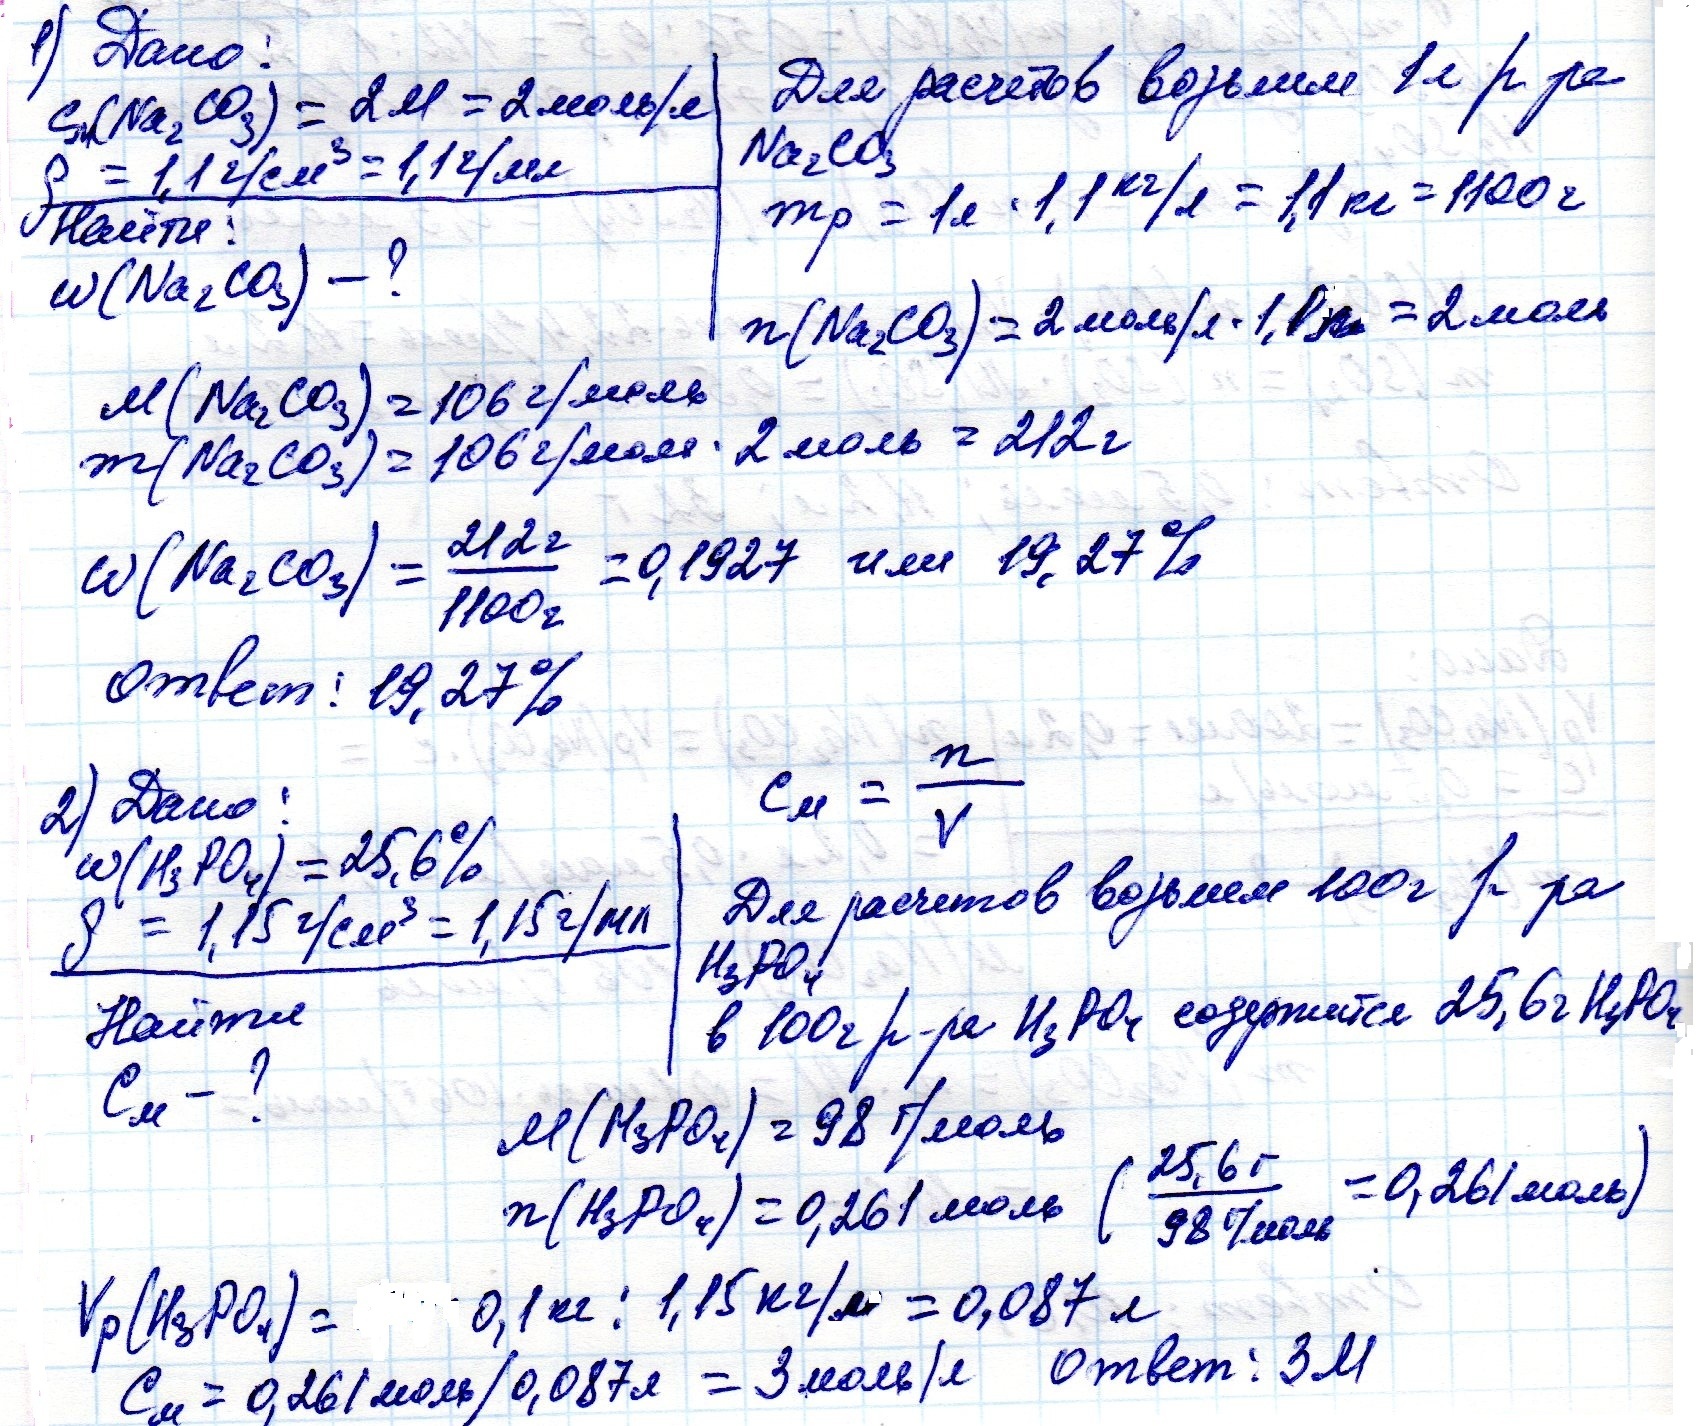 1) Дано:
Cм(Na₂CO₃) = 2М = 2моль/л
ρ = 1,1г/см³ = 1,1г/мл
Найти:
w(Na₂CO₃) – ?
Для расчетов возьмем 1л р-ра
Na₂CO₃
mр = 1л · 1,1кг/л = 1,1кг = 1100г
n(Na₂CO₃) = 2моль/л · 1 = 2моль
M(Na₂CO₃) = 106г/моль
m(Na₂CO₃) = 106г/моль · 2моль = 212г
w(Na₂CO₃) = 212г / 1100г = 0,1927 или 19,27%
Ответ: 19,27%
2) Дано:
w(H₃PO₄) = 25,6%
ρ = 1,15г/см³ = 1,15г/мл
Найти
Cм – ?
Cм = n / V
Для расчетов возьмем 100г р-ра
H₃PO₄
в 100г р-ра H₃PO₄ содержится 25,6г H₃PO₄
M(H₃PO₄) = 98г/моль
n(H₃PO₄) = 0,261моль (25,6г / 98г/моль = 0,261моль)
Vр(H₃PO₄) = 0,1кг : 1,15кг/л = 0,087л
Cм = 0,261моль/0,087л = 3моль/л Ответ: 3М